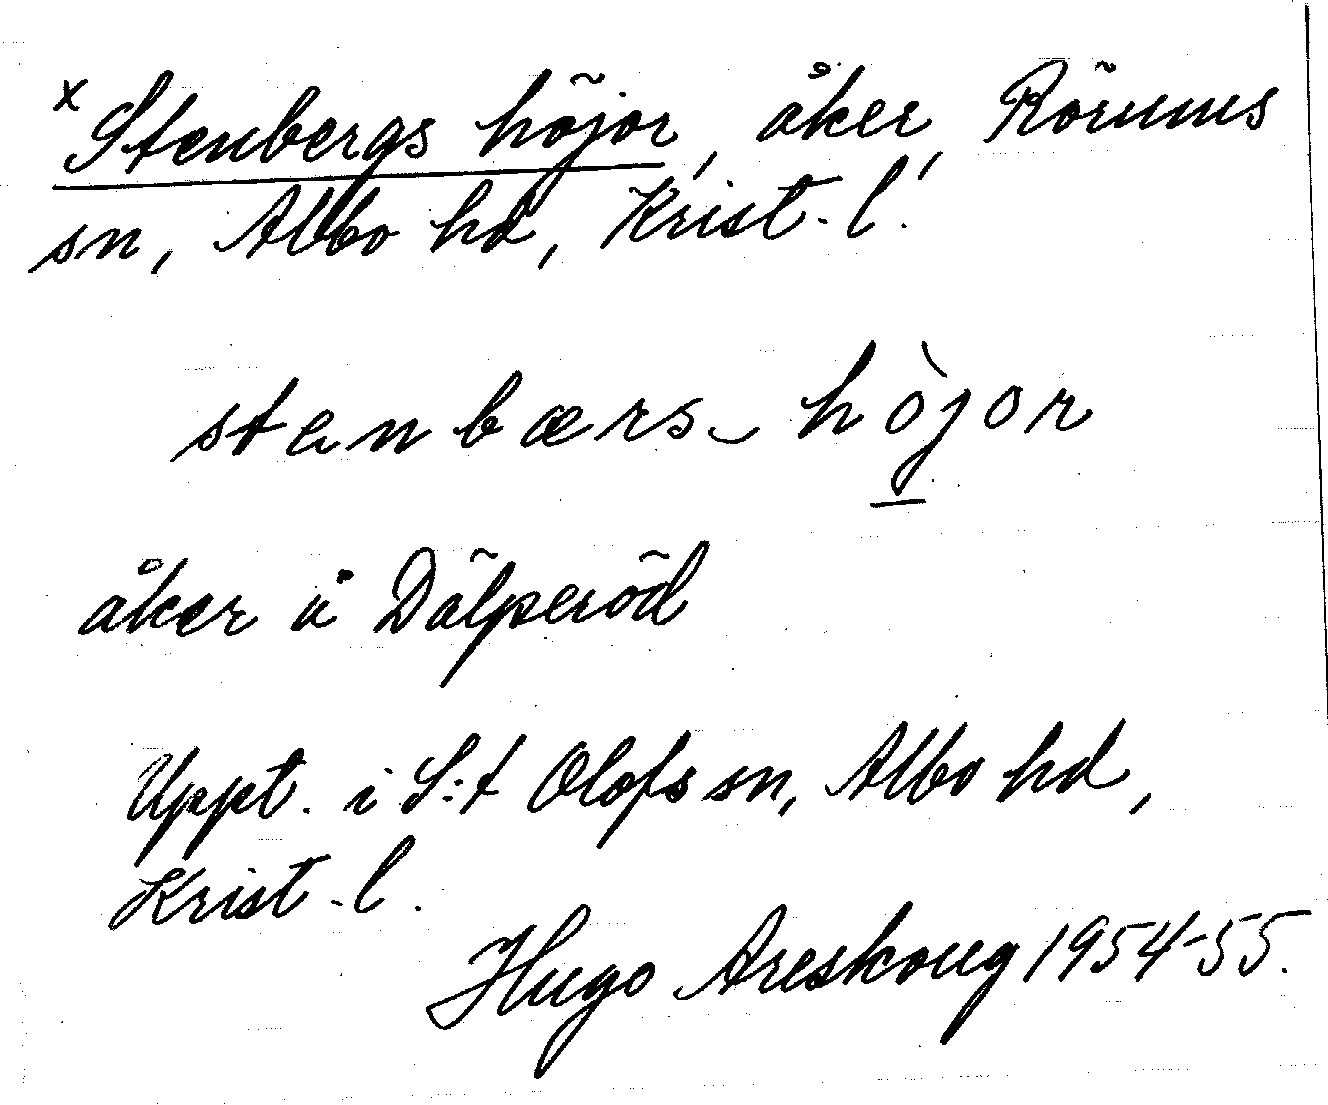 x Stenbergs höjor, åker, Rörums
sn, Albo hd, Krist.l.
stenbærs‿hòjor
åker å Dälperöd
Uppt. i S:t Olofs sn, Albo hd,
Krist.l.
Hugo Areskoug 1954-55.